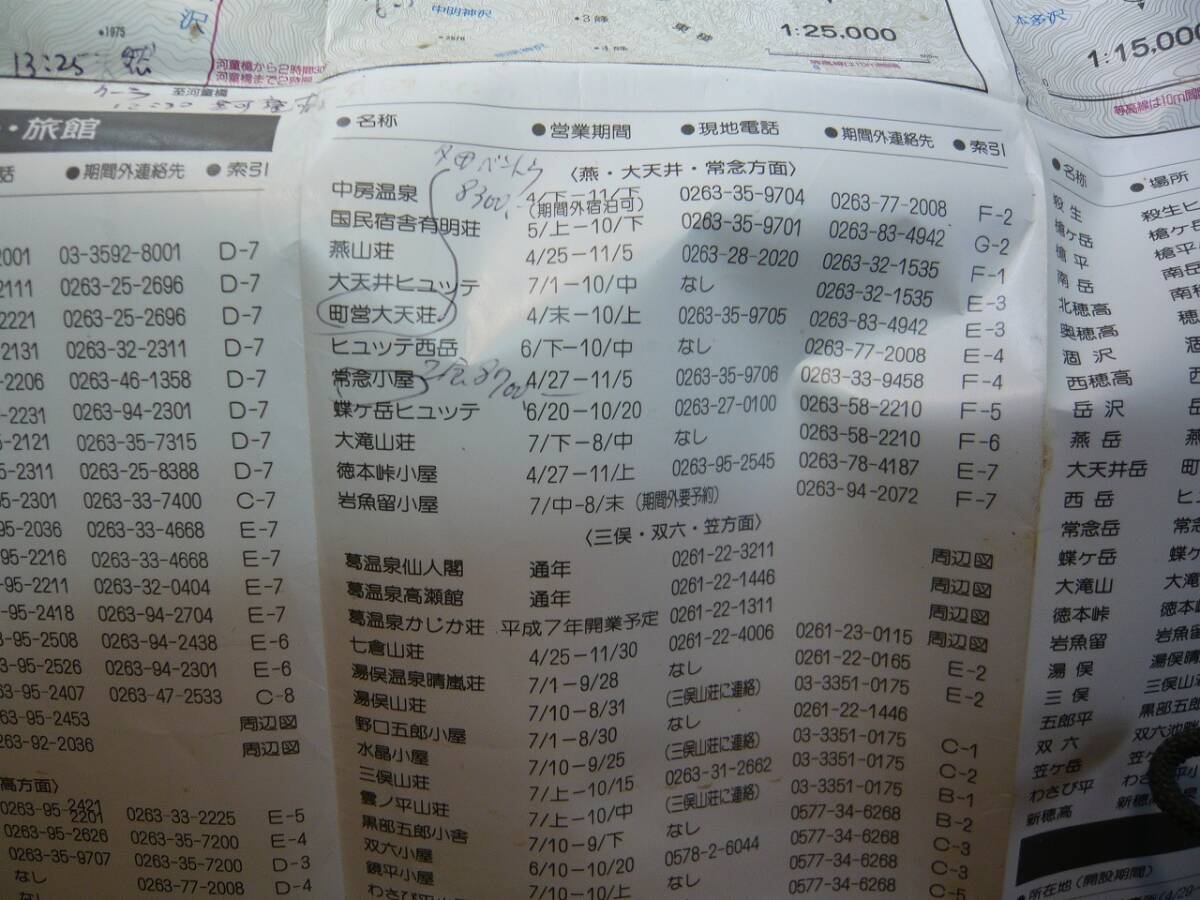 沢
•1975
13:25
河童橋から2時間30
河童橋まで2時間
至河童橋
中明神沢
•3峰
•4峰
東稜
1:25,000
本多沢
1:15,000
等高線は10m間
・旅館
話 ●期間外連絡先 ●索引
2001 03-3592-8001 D-7
2111 0263-25-2696 D-7
2221 0263-25-2696 D-7
2131 0263-32-2311 D-7
2206 0263-46-1358 D-7
2231 0263-94-2301 D-7
2121 0263-35-7315 D-7
2311 0263-25-8388 D-7
95-2301 0263-33-7400 C-7
95-2036 0263-33-4668 E-7
95-2216 0263-33-4668 E-7
95-2211 0263-32-0404 E-7
95-2418 0263-94-2704 E-7
95-2508 0263-94-2438 E-6
95-2526 0263-94-2301 E-6
95-2407 0263-47-2533 C-8
63-95-2453 周辺図
263-92-2036 周辺図
高方面〉
0263-95-2421 2201 0263-33-2225 E-5
0263-95-2626 0263-35-7200 E-4
0263-35-9707 0263-35-7200 D-3
なし 0263-77-2008 D-4
なし
●名称 ●営業期間 ●現地電話 ●期間外連絡先 ●索引
〈燕・大天井・常念方面〉
8300
中房温泉 4/下−11/下 (期間外宿泊可) 0263-35-9704 0263-77-2008 F-2
国民宿舎有明荘 5/上−10/下 0263-35-9701 0263-83-4942 G-2
燕山荘 4/25−11/5 0263-28-2020 0263-32-1535 F-1
大天井ヒュッテ 7/1−10/中 なし 0263-32-1535 E-3
町営大天荘 4/末−10/上 0263-35-9705 0263-83-4942 E-3
ヒュッテ西岳 6/下−10/中 なし 0263-77-2008 E-4
常念小屋 8700 4/27−11/5 0263-35-9706 0263-33-9458 F-4
蝶ケ岳ヒュッテ 6/20−10/20 0263-27-0100 0263-58-2210 F-5
大滝山荘 7/下−8/中 なし 0263-58-2210 F-6
徳本峠小屋 4/27−11/上 0263-95-2545 0263-78-4187 E-7
岩魚留小屋 7/中−8/末 (期間外要予約) 0263-94-2072 F-7
〈三俣・双六・笠方面〉
葛温泉仙人閣 通年 0261-22-3211 周辺図
葛温泉高瀬館 通年 0261-22-1446 周辺図
葛温泉かじか荘 平成7年開業予定 0261-22-1311 周辺図
七倉山荘 4/25−11/30 0261-22-4006 0261-23-0115 周辺図
湯俣温泉晴嵐荘 7/1−9/28 なし 0261-22-0165 E-2
湯俣山荘 7/10−8/31 (三俣山荘に連絡) 03-3351-0175 E-2
野口五郎小屋 7/1−8/30 なし 0261-22-1446 C-1
水晶小屋 7/10−9/25 (三俣山荘に連絡) 03-3351-0175 C-2
三俣山荘 7/上−10/15 0263-31-2662 03-3351-0175 B-1
雲ノ平山荘 7/上−10/中 (三俣山荘に連絡) 03-3351-0175 B-2
黒部五郎小舎 7/10−9/下 なし 0577-34-6268 C-3
双六小屋 6/10−10/20 0578-2-6044 0577-34-6268 C-3
鏡平小屋 7/10−10/上 なし 0577-34-6268 C-5
わさび平小
●名称 ●場所
殺生 殺生ヒ
槍ケ岳 槍ケ岳
槍平 槍平
南岳 南岳
北穂高 北穂
奥穂高 穂
涸沢 涸
西穂高 西
岳沢 岳
燕岳 燕
大天井岳 町
西岳 ヒュ
常念岳 常念
蝶ケ岳 蝶ケ
大滝山 大滝
徳本峠 徳本
岩魚留 岩魚留
湯俣 湯俣晴
三俣 三俣山荘
五郎平 黒部五郎
双六 双六池
笠ケ岳 笠ケ
わさび平 わさび平
新穂高 新穂高
●所在地(開設期間)